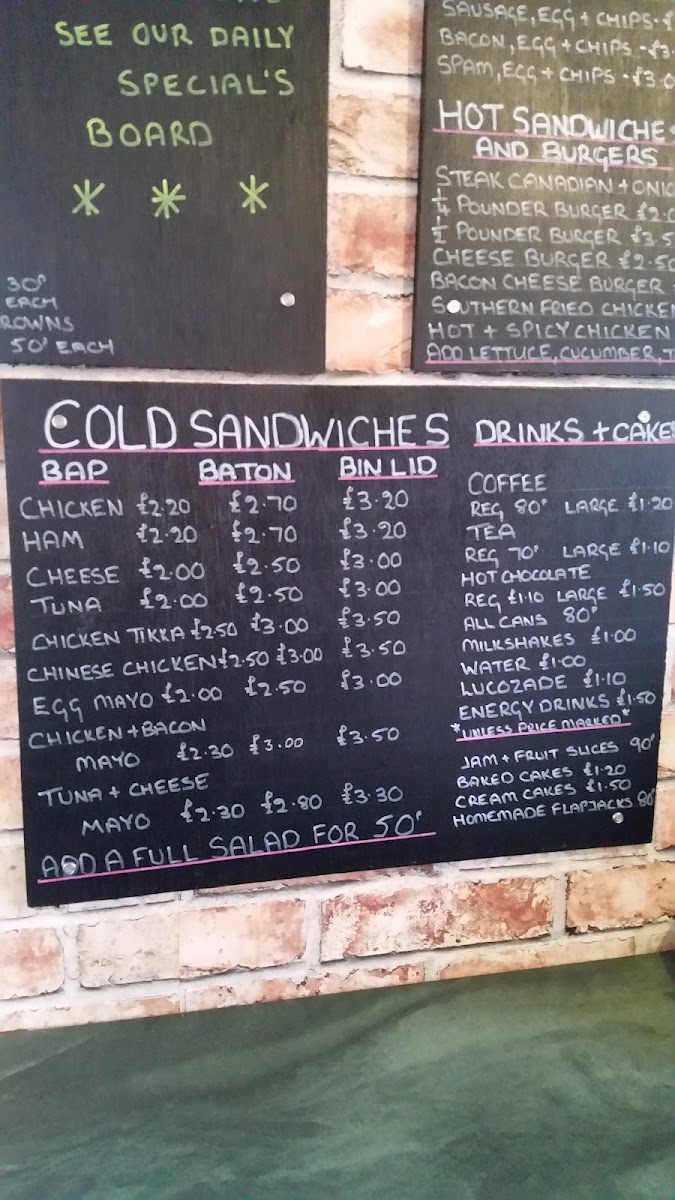 SEE OUR DAILY
SPECIAL'S
BOARD
* * *
30P
EACH
ROWNS
50P EACH
SAUSAGE, EGG + CHIPS -
BACON, EGG + CHIPS - £3.
SPAM, EGG + CHIPS - £3.0
HOT SANDWICHE
AND BURGERS
STEAK CANADIAN + ONIO
1/4 POUNDER BURGER £2.0
1/2 POUNDER BURGER £3.5
CHEESE BURGER £2.50
BACON CHEESE BURGER
SOUTHERN FRIED CHICKEN
HOT + SPICY CHICKEN
ADD LETTUCE, CUCUMBER, T
COLD SANDWICHES
BAP BATON BIN LID
CHICKEN £2.20 £2.70 £3.20
HAM £2.20 £2.70 £3.20
CHEESE £2.00 £2.50 £3.00
TUNA £2.00 £2.50 £3.00
CHICKEN TIKKA £2.50 £3.00 £3.50
CHINESE CHICKEN £2.50 £3.00 £3.50
EGG MAYO £2.00 £2.50 £3.00
CHICKEN + BACON
MAYO £2.30 £3.00 £3.50
TUNA + CHEESE
MAYO £2.30 £2.80 £3.30
ADD A FULL SALAD FOR 50P
DRINKS + CAKES
COFFEE
REG 80P LARGE £1.20
TEA
REG 70P LARGE £1.10
HOT CHOCOLATE
REG £1.10 LARGE £1.50
ALL CANS 80P
MILKSHAKES £1.00
WATER £1.00
LUCOZADE £1.10
ENERGY DRINKS £1.50
*UNLESS PRICE MARKED*
JAM + FRUIT SLICES 90P
BAKED CAKES £1.20
CREAM CAKES £1.50
HOMEMADE FLAPJACKS 80P